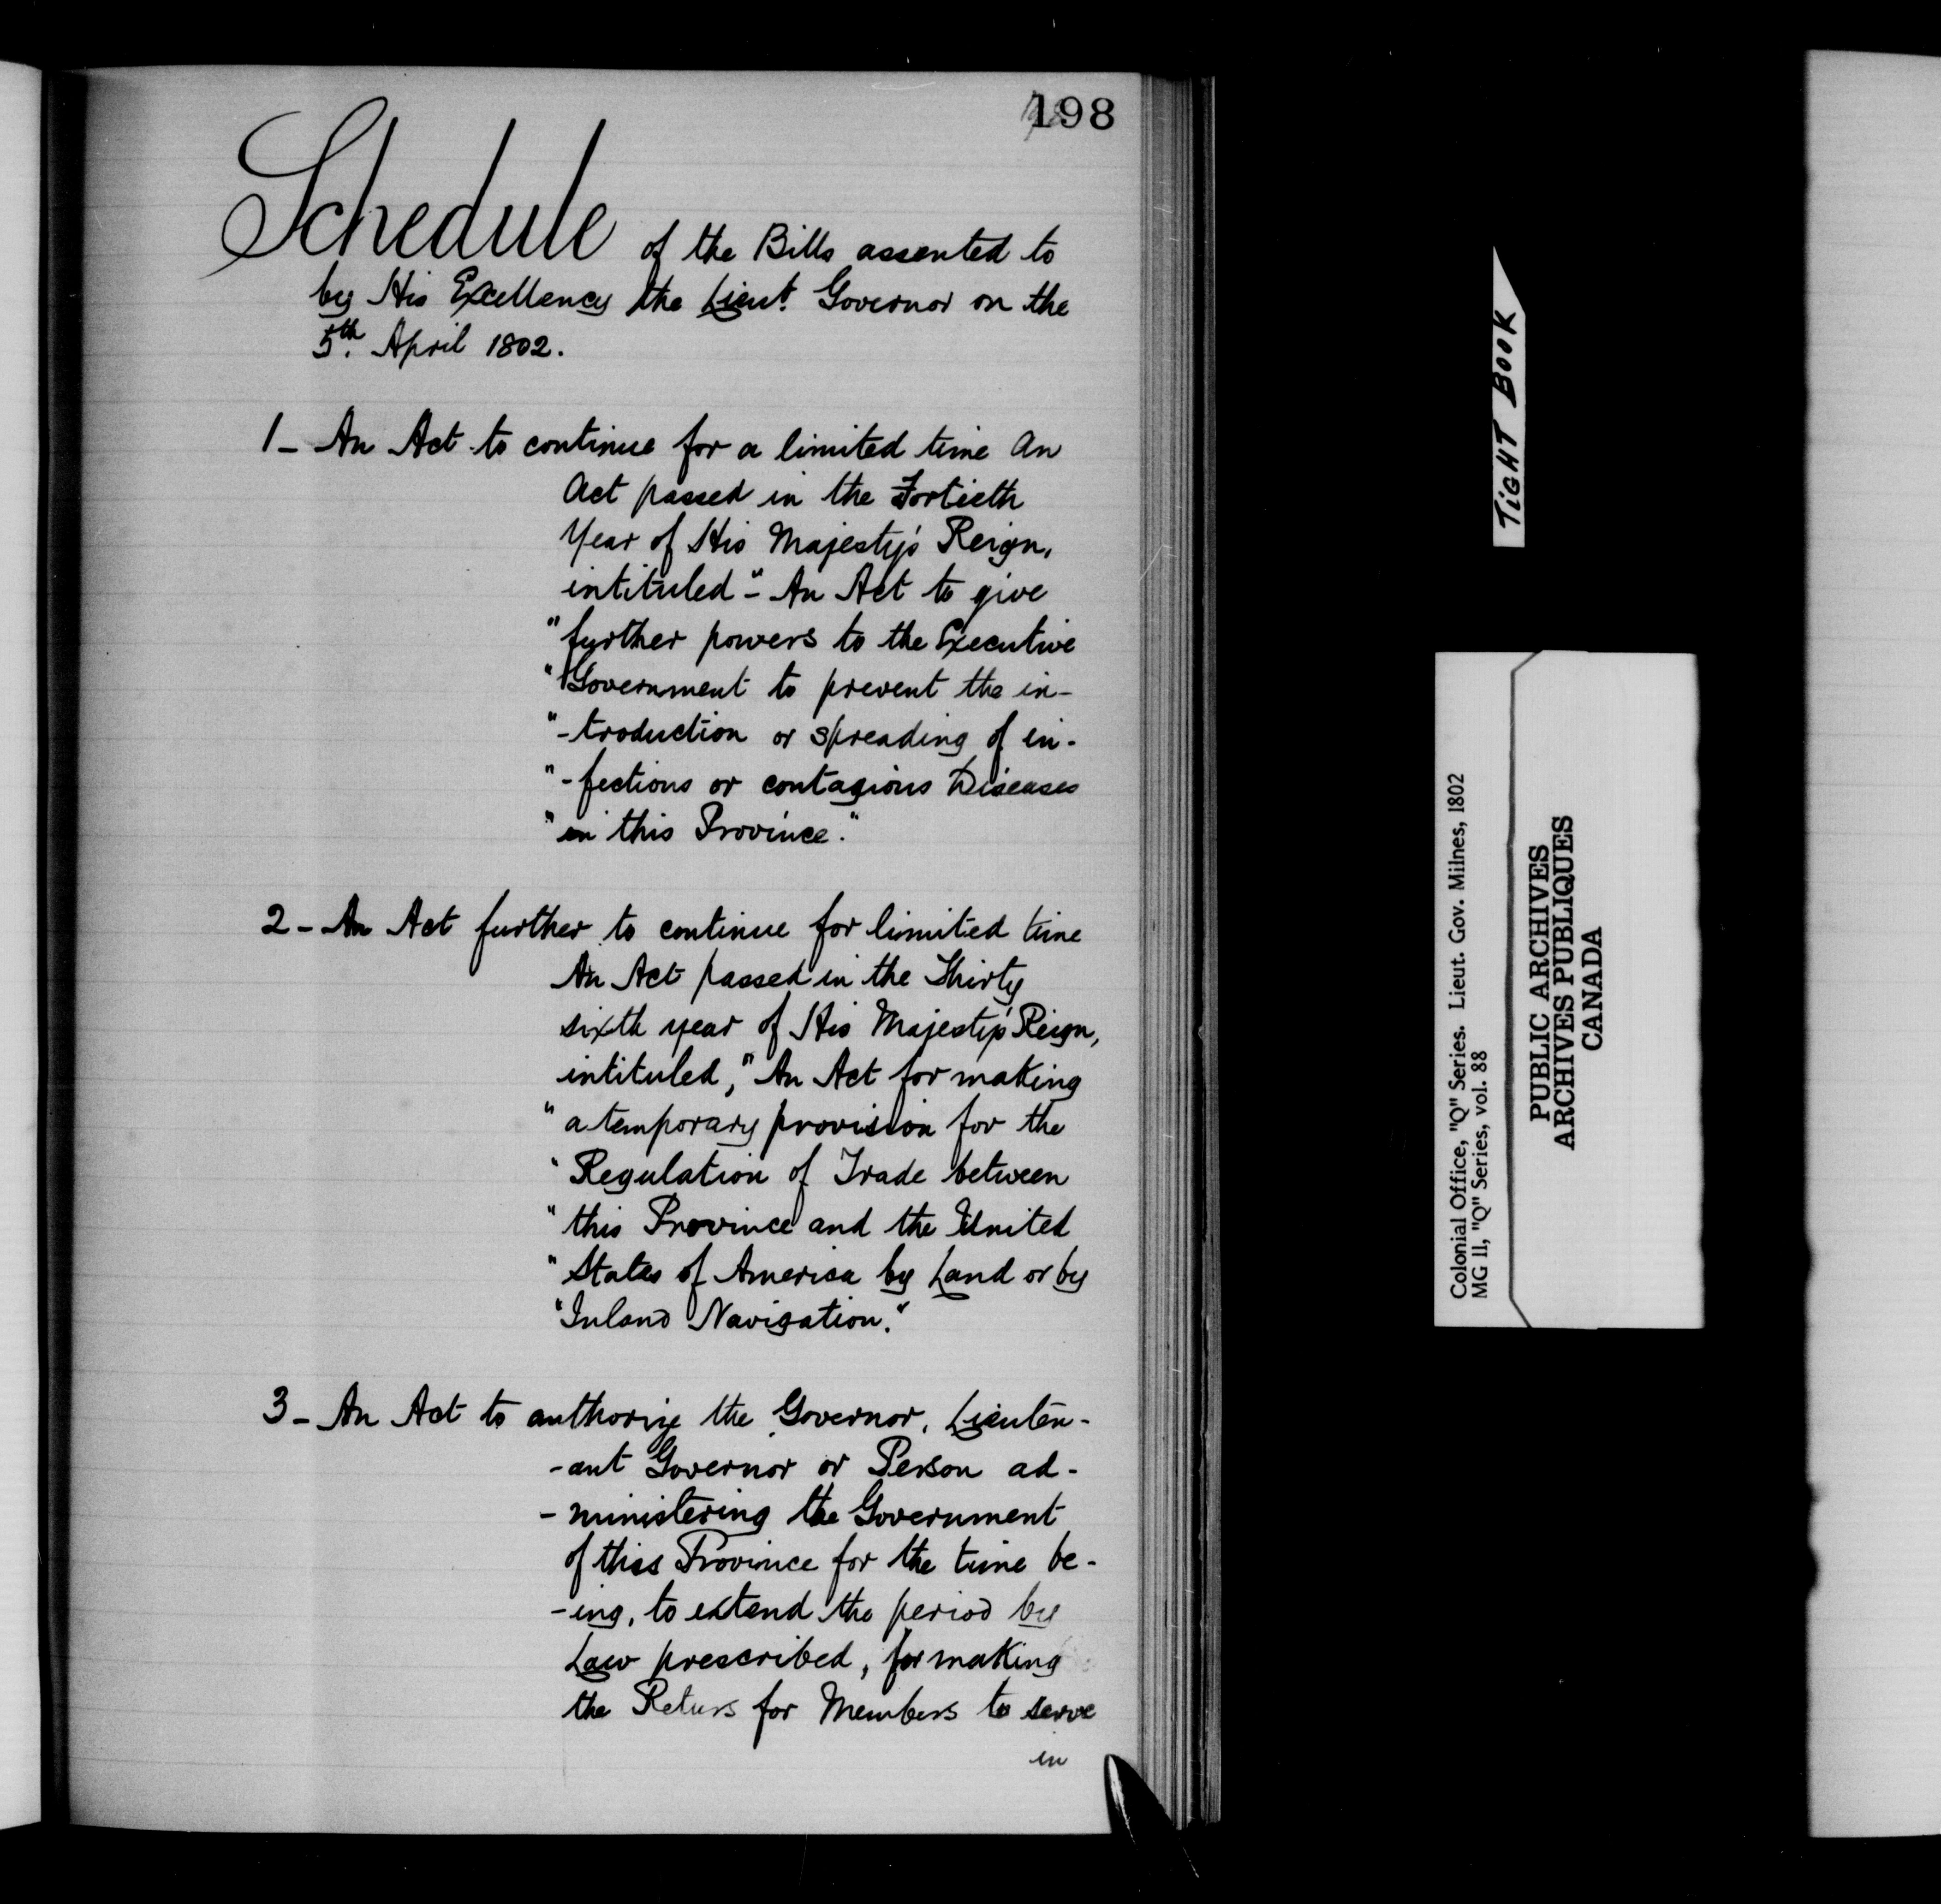 198
Schedule of the Bills assented to
by His Excellency the Lieut. Governor on the
5th. April 1802.
1 - An Act to continue for a limited time An
Act passed in the Fortieth
Year of His Majesty's Reign,
intituled - "An Act to give
"further powers to the Executive
"Government to prevent the in-
"-troduction or spreading of in-
"-fections or contagious Diseases
"in this Province."
2 - An Act further to continue for limited time
An Act passed in the Thirty
sixth year of His Majesty's Reign,
intituled, "An Act for making
"a temporary provision for the
"Regulation of Trade between
"this Province and the United
"States of America by Land or by
"Inland Navigation."
3 - An Act to authorize the Governor, Lieuten-
-ant Governor or Person ad-
-ministering the Government
of this Province for the time be-
-ing, to extend the period by
Law prescribed, for making
the Return for Members to serve
in
TIGHT BOOK
Colonial Office, "Q" Series. Lieut. Gov. Milnes, 1802
MG 11, "Q" Series, vol. 88
PUBLIC ARCHIVES
ARCHIVES PUBLIQUES
CANADA